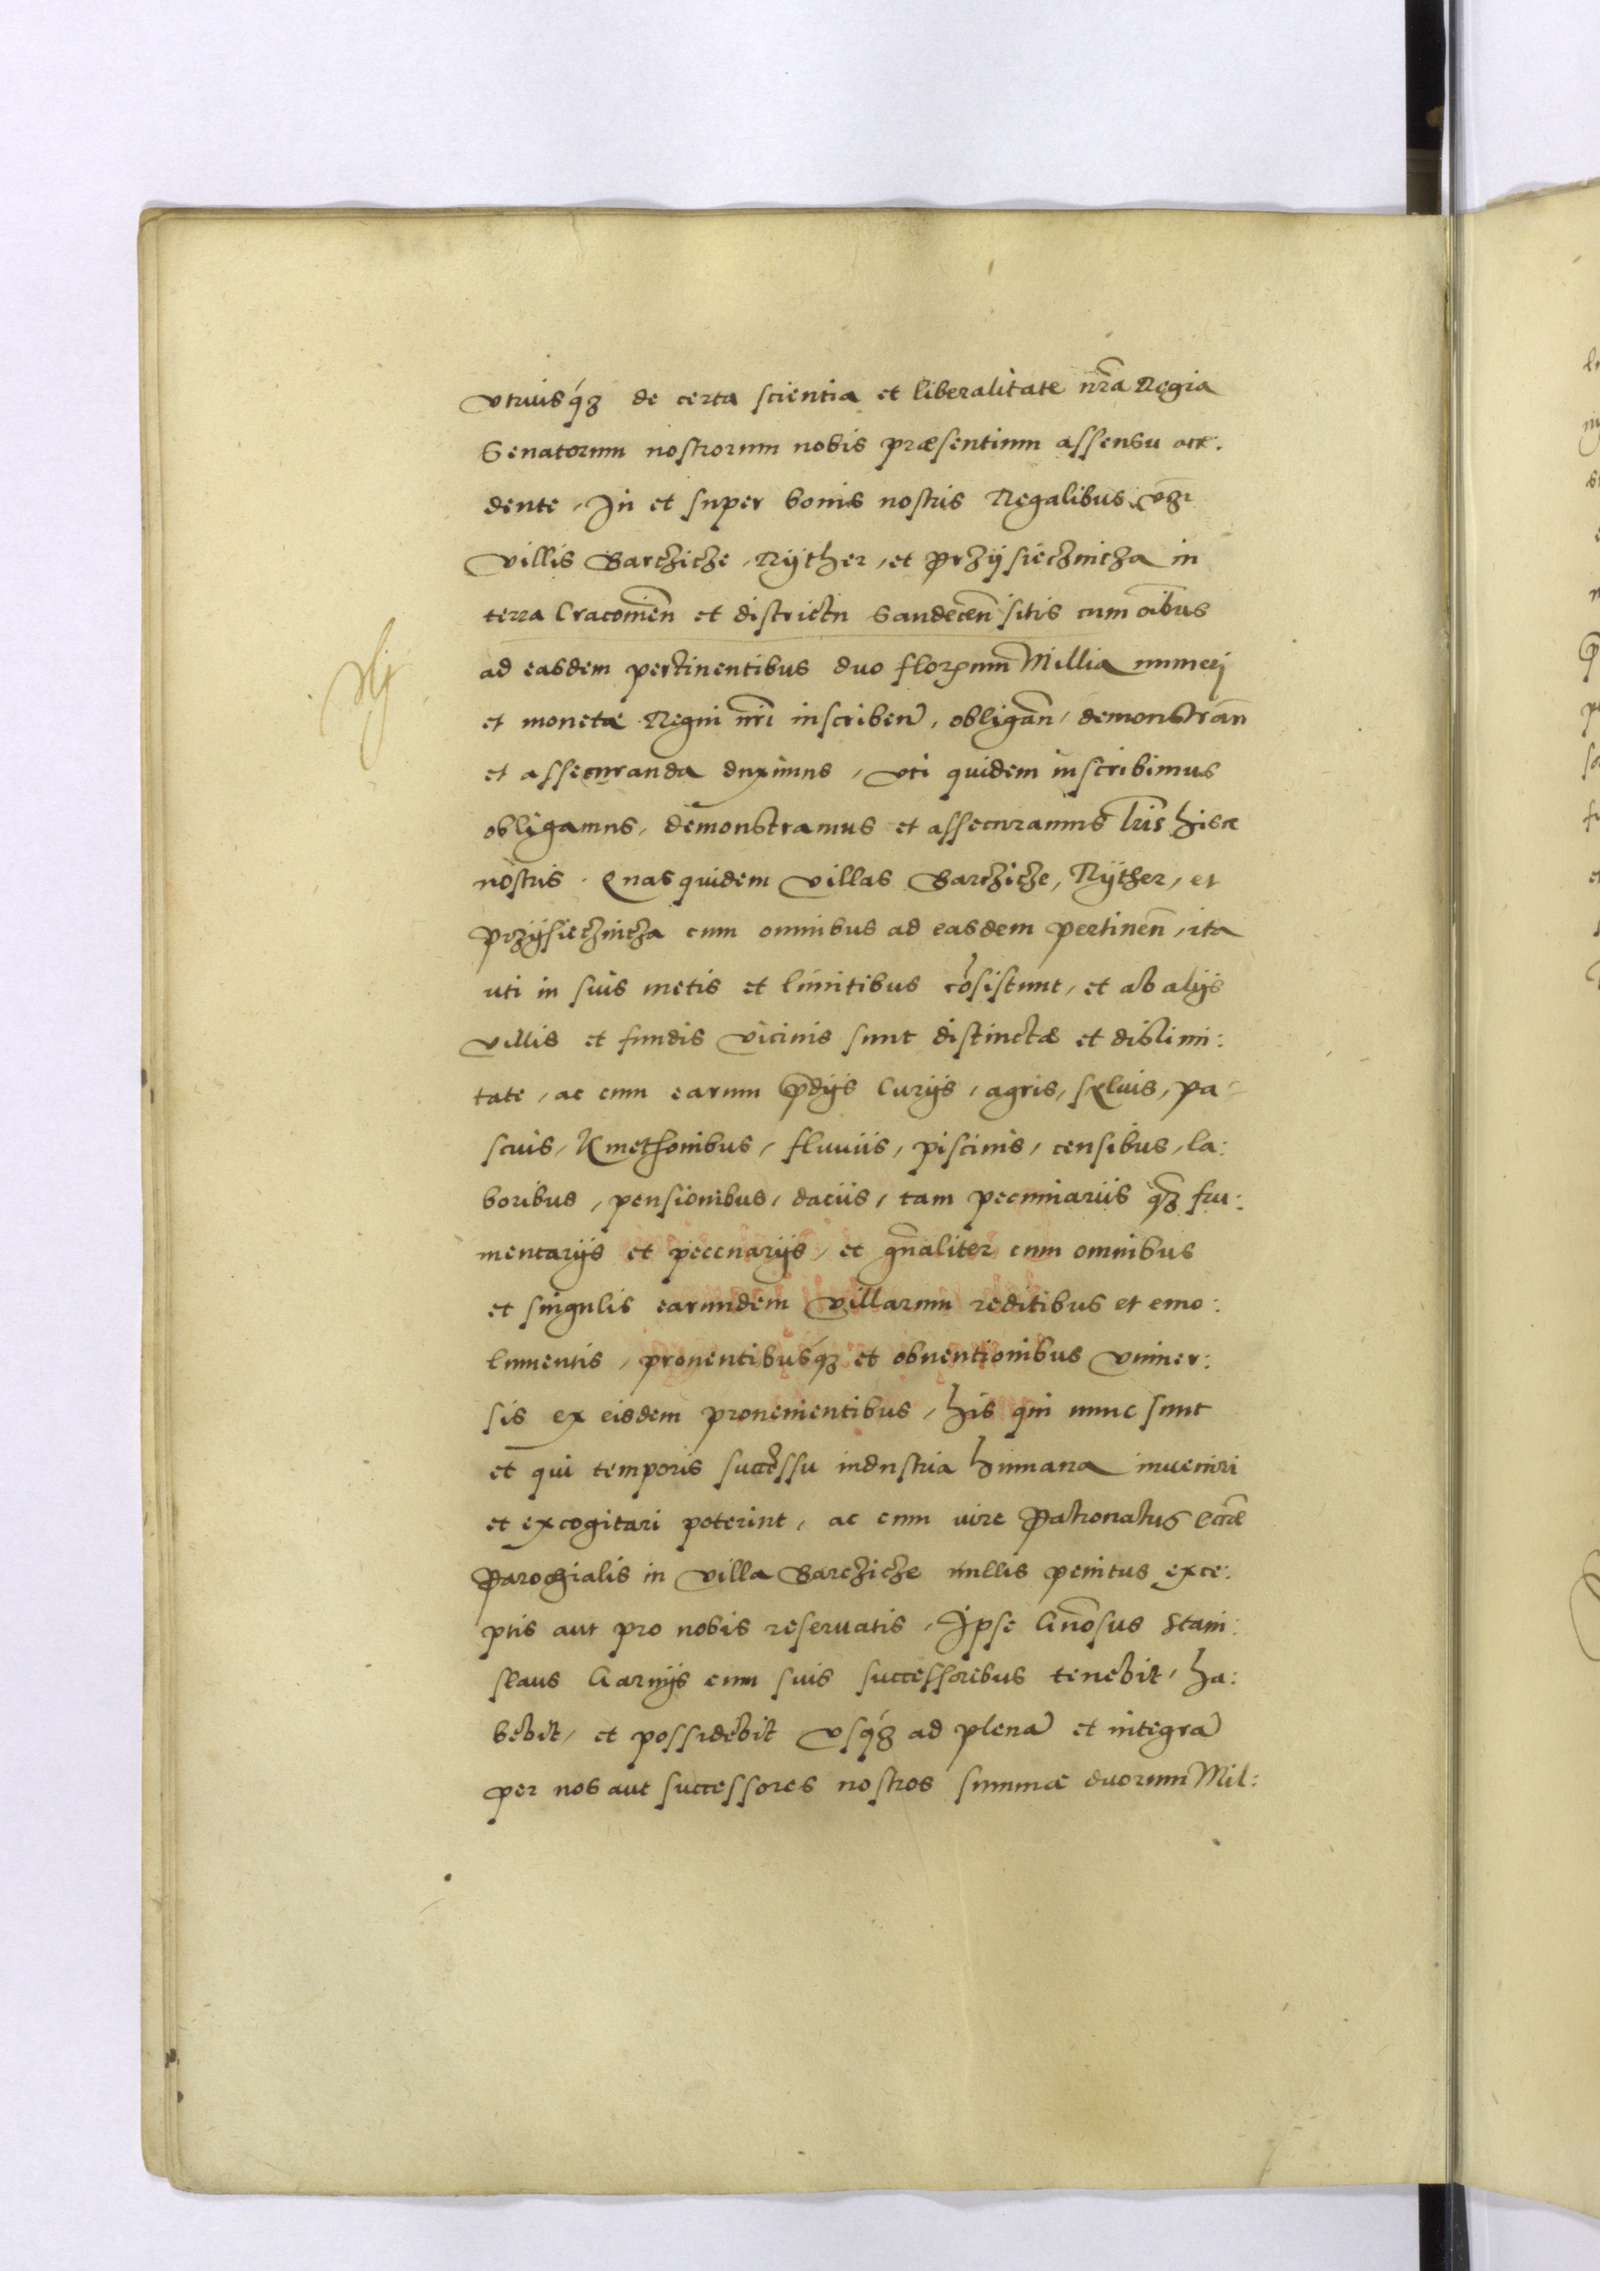 vtriusq́ꝫ de certa scientia et liberalitate nr̃a Regia
Senatorum nostrorum nobis præsentium assensu acce:
dente, In et super bonis nostris Regalibus vꝫ
villis Barczicze, Ryther, et Przysiecznicza in
terra Cracouień et districtu Sandeceń sitis cum oĩbus
ad easdem pertinentibus duo florenũ Millia numeri
et monetæ Regni nr̃i inscribeñ, obligañ, demonstrañ
et assecuranda duximus, vti quidem inscribimus
obligamus, demonstramus et assecuramus Lr̃is hisce
nostris. Quas quidem villas Barczicze, Ryther, et
Przysiecznicza cum omnibus ad easdem pertineñ, ita
uti in suis metis et limitibus cõsistunt, et ab alijs
villis et fundis vicinis sunt distinctæ et dislimi:
tate, ac cum earum p̃dijs Curijs, agris, syluis, pa
scuis, Kmethonibus, fluuiis, piscinis, censibus, la:
boribus, pensionibus, daciis, tam pecuniariis q̃ꝫ fru:
mentarijs et pecenarijs, et gñaliter cum omnibus
et singulis earumdem villarum reditibus et emo:
lumentis, prouentibusq́ꝫ et obuentionibus vniuer:
sis ex eisdem prouenientibus, his qui nunc sunt
et qui temporis successu industria humana inueniri
et excogitari poterint, ac cum iure Patronatus Eccłæ
Parochialis in villa Barczicze nullis penitus exce:
ptis aut pro nobis reseruatis, Ipse Gñosus Stani:
slaus Garnijs cum suis successoribus tenebit, ha:
bebit, et possidebit vsq́ꝫ ad plenã et integrã
per nos aut successores nostros summæ duorum Mil: